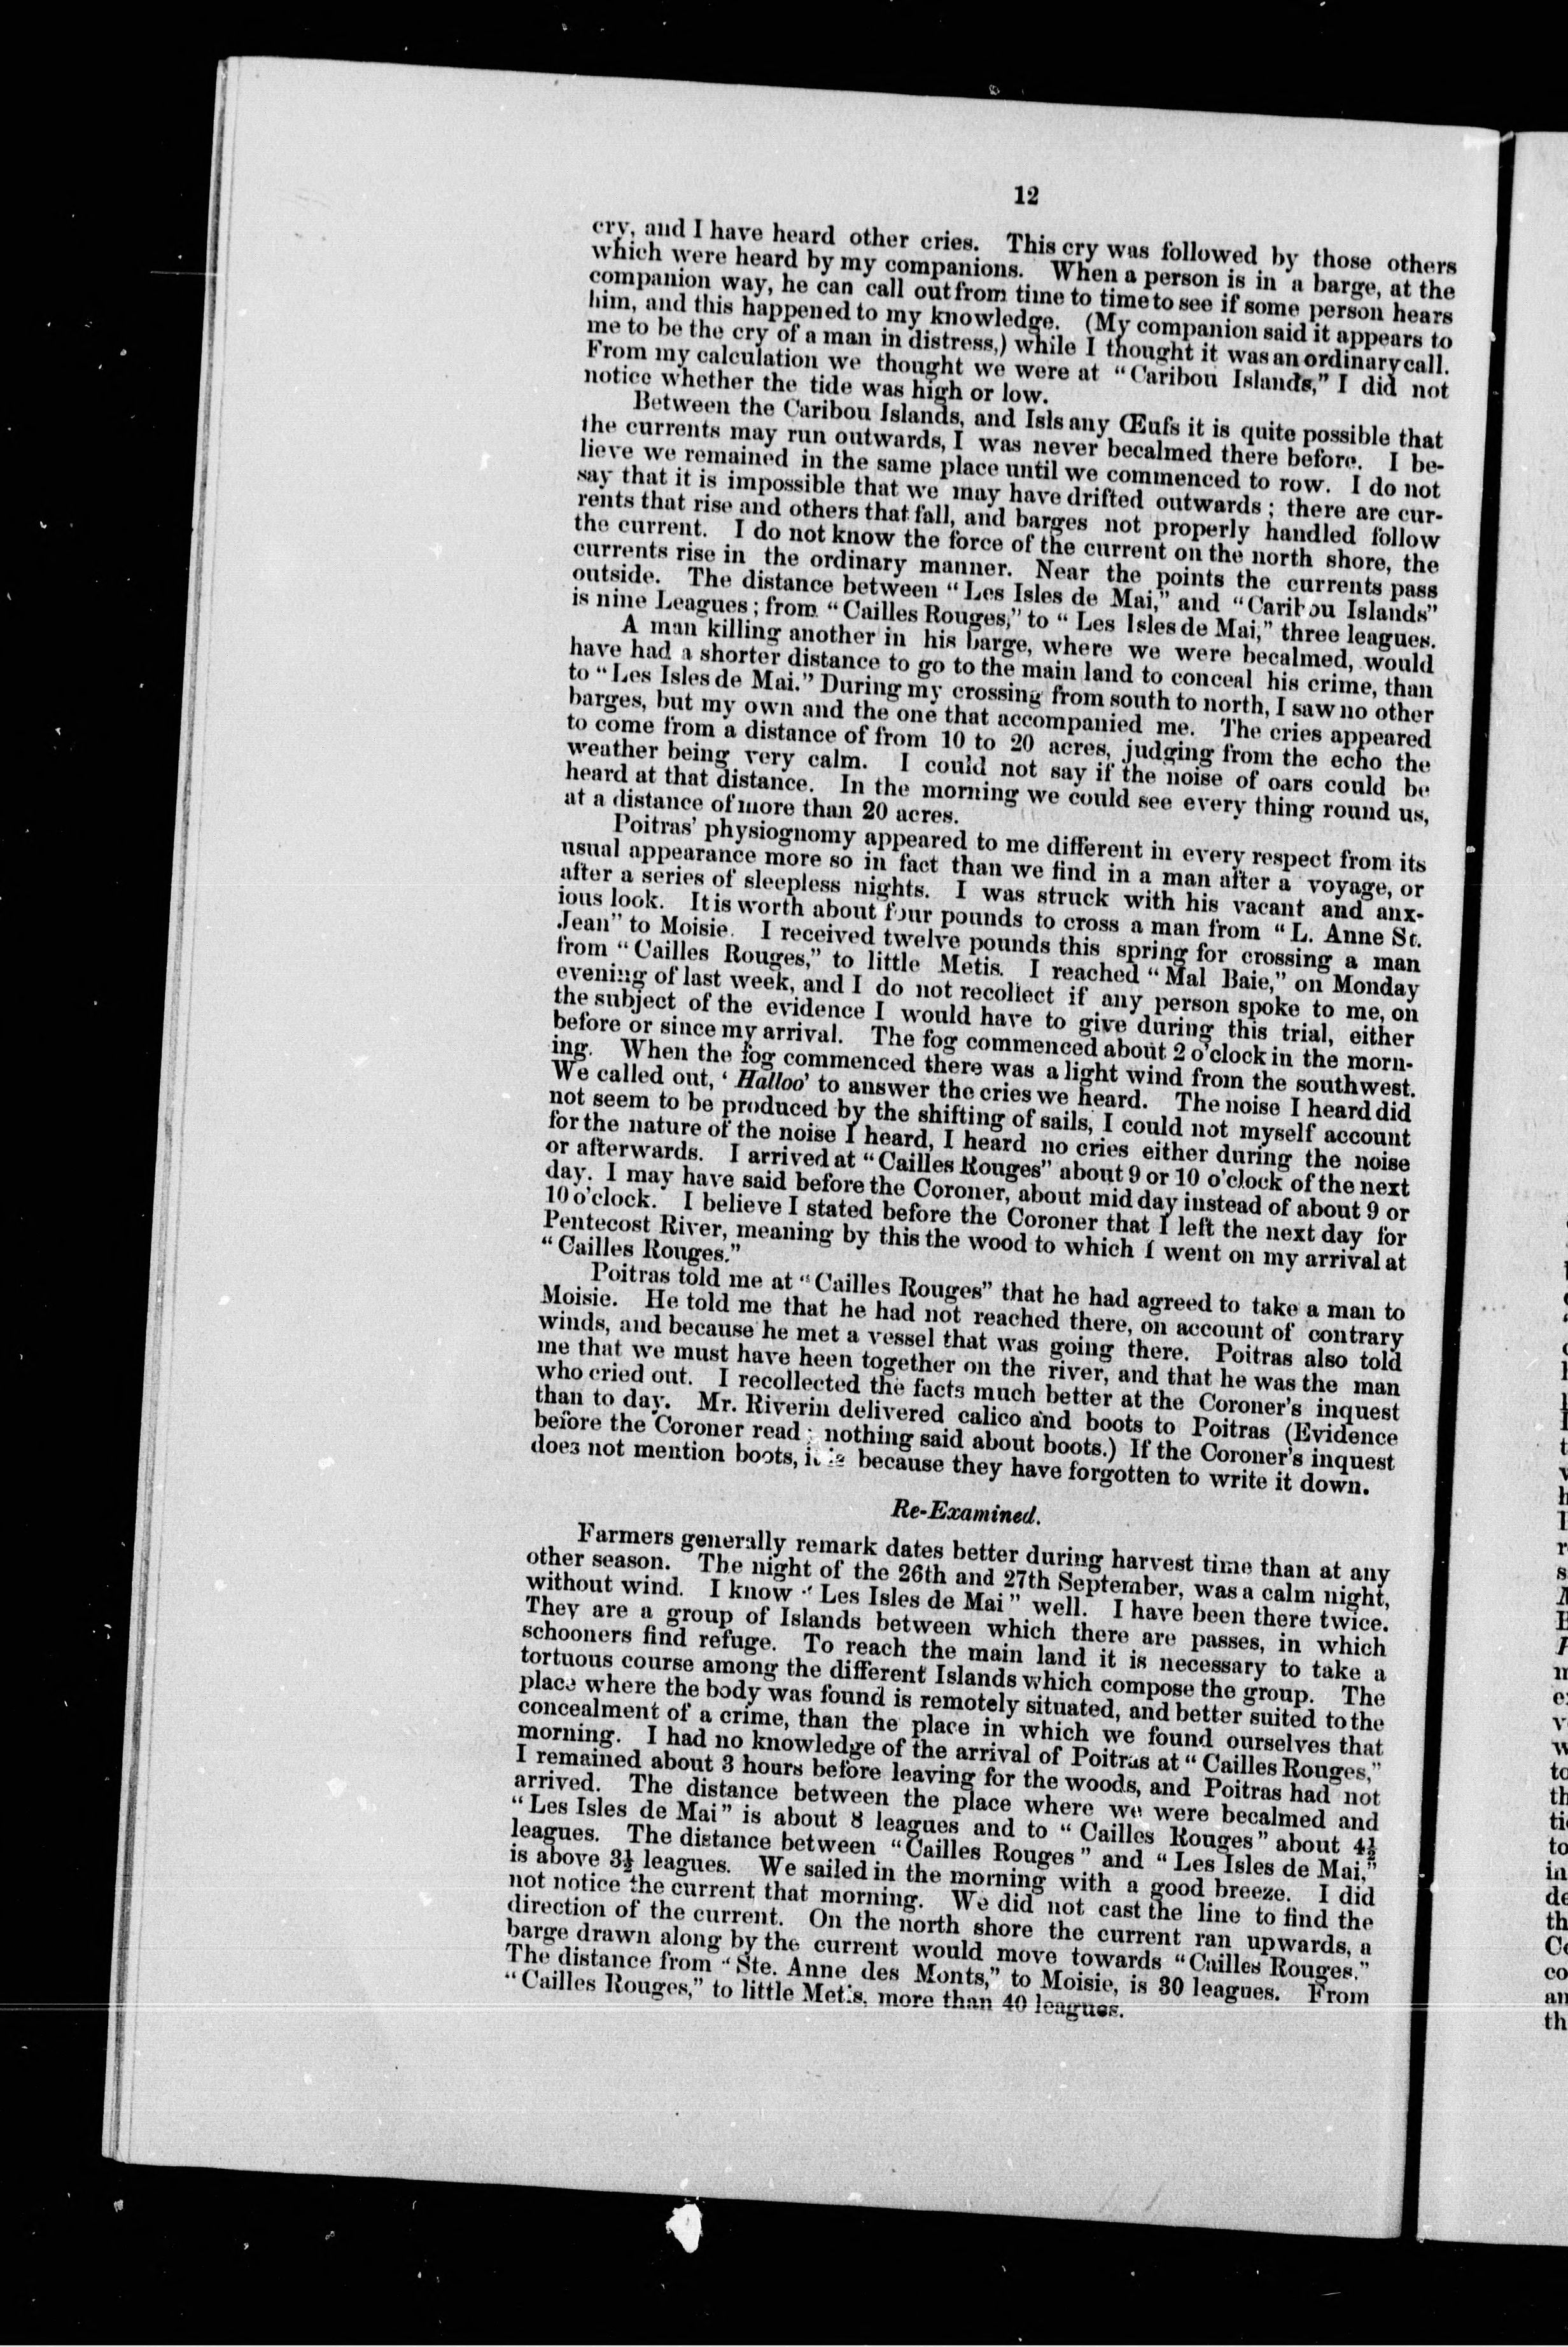 12
cry, and I have heard other cries. This cry was followed by those others
which were heard by my companions. When a person is in a barge, at the
companion way, he can call out from time to time to see if some person hears
him, and this happened to my knowledge. (My companion said it appears to
me to be the cry of a man in distress,) while I thought it was an ordinary call.
From my calculation we thought we were at "Caribou Islands," I did not
notice whether the tide was high or low.
Between the Caribou Islands, and Isls any Œufs it is quite possible that
the currents may run outwards, I was never becalmed there before. I be-
lieve we remained in the same place until we commenced to row. I do not
say that it is impossible that we may have drifted outwards; there are cur-
rents that rise and others that fall, and barges not properly handled follow
the current. I do not know the force of the current on the north shore, the
currents rise in the ordinary manner. Near the points the currents pass
outside. The distance between "Les Isles de Mai," and "Caribou Islands"
is nine Leagues; from "Cailles Rouges," to "Les Isles de Mai," three leagues.
A man killing another in his barge, where we were becalmed, would
have had a shorter distance to go to the main land to conceal his crime, than
to "Les Isles de Mai." During my crossing from south to north, I saw no other
barges, but my own and the one that accompanied me. The cries appeared
to come from a distance of from 10 to 20 acres, judging from the echo the
weather being very calm. I could not say if the noise of oars could be
heard at that distance. In the morning we could see every thing round us,
at a distance of more than 20 acres.
Poitras' physiognomy appeared to me different in every respect from its
usual appearance more so in fact than we find in a man after a voyage, or
after a series of sleepless nights. I was struck with his vacant and anx-
ious look. It is worth about four pounds to cross a man from "L. Anne St.
Jean" to Moisie. I received twelve pounds this spring for crossing a man
from "Cailles Rouges," to little Metis. I reached "Mal Baie," on Monday
evening of last week, and I do not recollect if any person spoke to me, on
the subject of the evidence I would have to give during this trial, either
before or since my arrival. The fog commenced about 2 o'clock in the morn-
ing. When the fog commenced there was a light wind from the southwest.
We called out, 'Halloo' to answer the cries we heard. The noise I heard did
not seem to be produced by the shifting of sails, I could not myself account
for the nature of the noise I heard, I heard no cries either during the noise
or afterwards. I arrived at "Cailles Rouges" about 9 or 10 o'clock of the next
day. I may have said before the Coroner, about mid day instead of about 9 or
10 o'clock. I believe I stated before the Coroner that I left the next day for
Pentecost River, meaning by this the wood to which I went on my arrival at
"Cailles Rouges."
Poitras told me at "Cailles Rouges" that he had agreed to take a man to
Moisie. He told me that he had not reached there, on account of contrary
winds, and because he met a vessel that was going there. Poitras also told
me that we must have heen together on the river, and that he was the man
who cried out. I recollected the facts much better at the Coroner's inquest
than to day. Mr. Riverin delivered calico and boots to Poitras (Evidence
before the Coroner read; nothing said about boots.) If the Coroner's inquest
does not mention boots, it is because they have forgotten to write it down.
Re-Examined.
Farmers generally remark dates better during harvest time than at any
other season. The night of the 26th and 27th September, was a calm night,
without wind. I know "Les Isles de Mai" well. I have been there twice.
They are a group of Islands between which there are passes, in which
schooners find refuge. To reach the main land it is necessary to take a
tortuous course among the different Islands which compose the group. The
place where the body was found is remotely situated, and better suited to the
concealment of a crime, than the place in which we found ourselves that
morning. I had no knowledge of the arrival of Poitras at "Cailles Rouges,"
I remained about 3 hours before leaving for the woods, and Poitras had not
arrived. The distance between the place where we were becalmed and
"Les Isles de Mai" is about 8 leagues and to "Cailles Rouges" about 4½
leagues. The distance between "Cailles Rouges" and "Les Isles de Mai,"
is above 3½ leagues. We sailed in the morning with a good breeze. I did
not notice the current that morning. We did not cast the line to find the
direction of the current. On the north shore the current ran upwards, a
barge drawn along by the current would move towards "Cailles Rouges."
The distance from "Ste. Anne des Monts," to Moisie, is 30 leagues. From
"Cailles Rouges," to little Metis, more than 40 leagues.